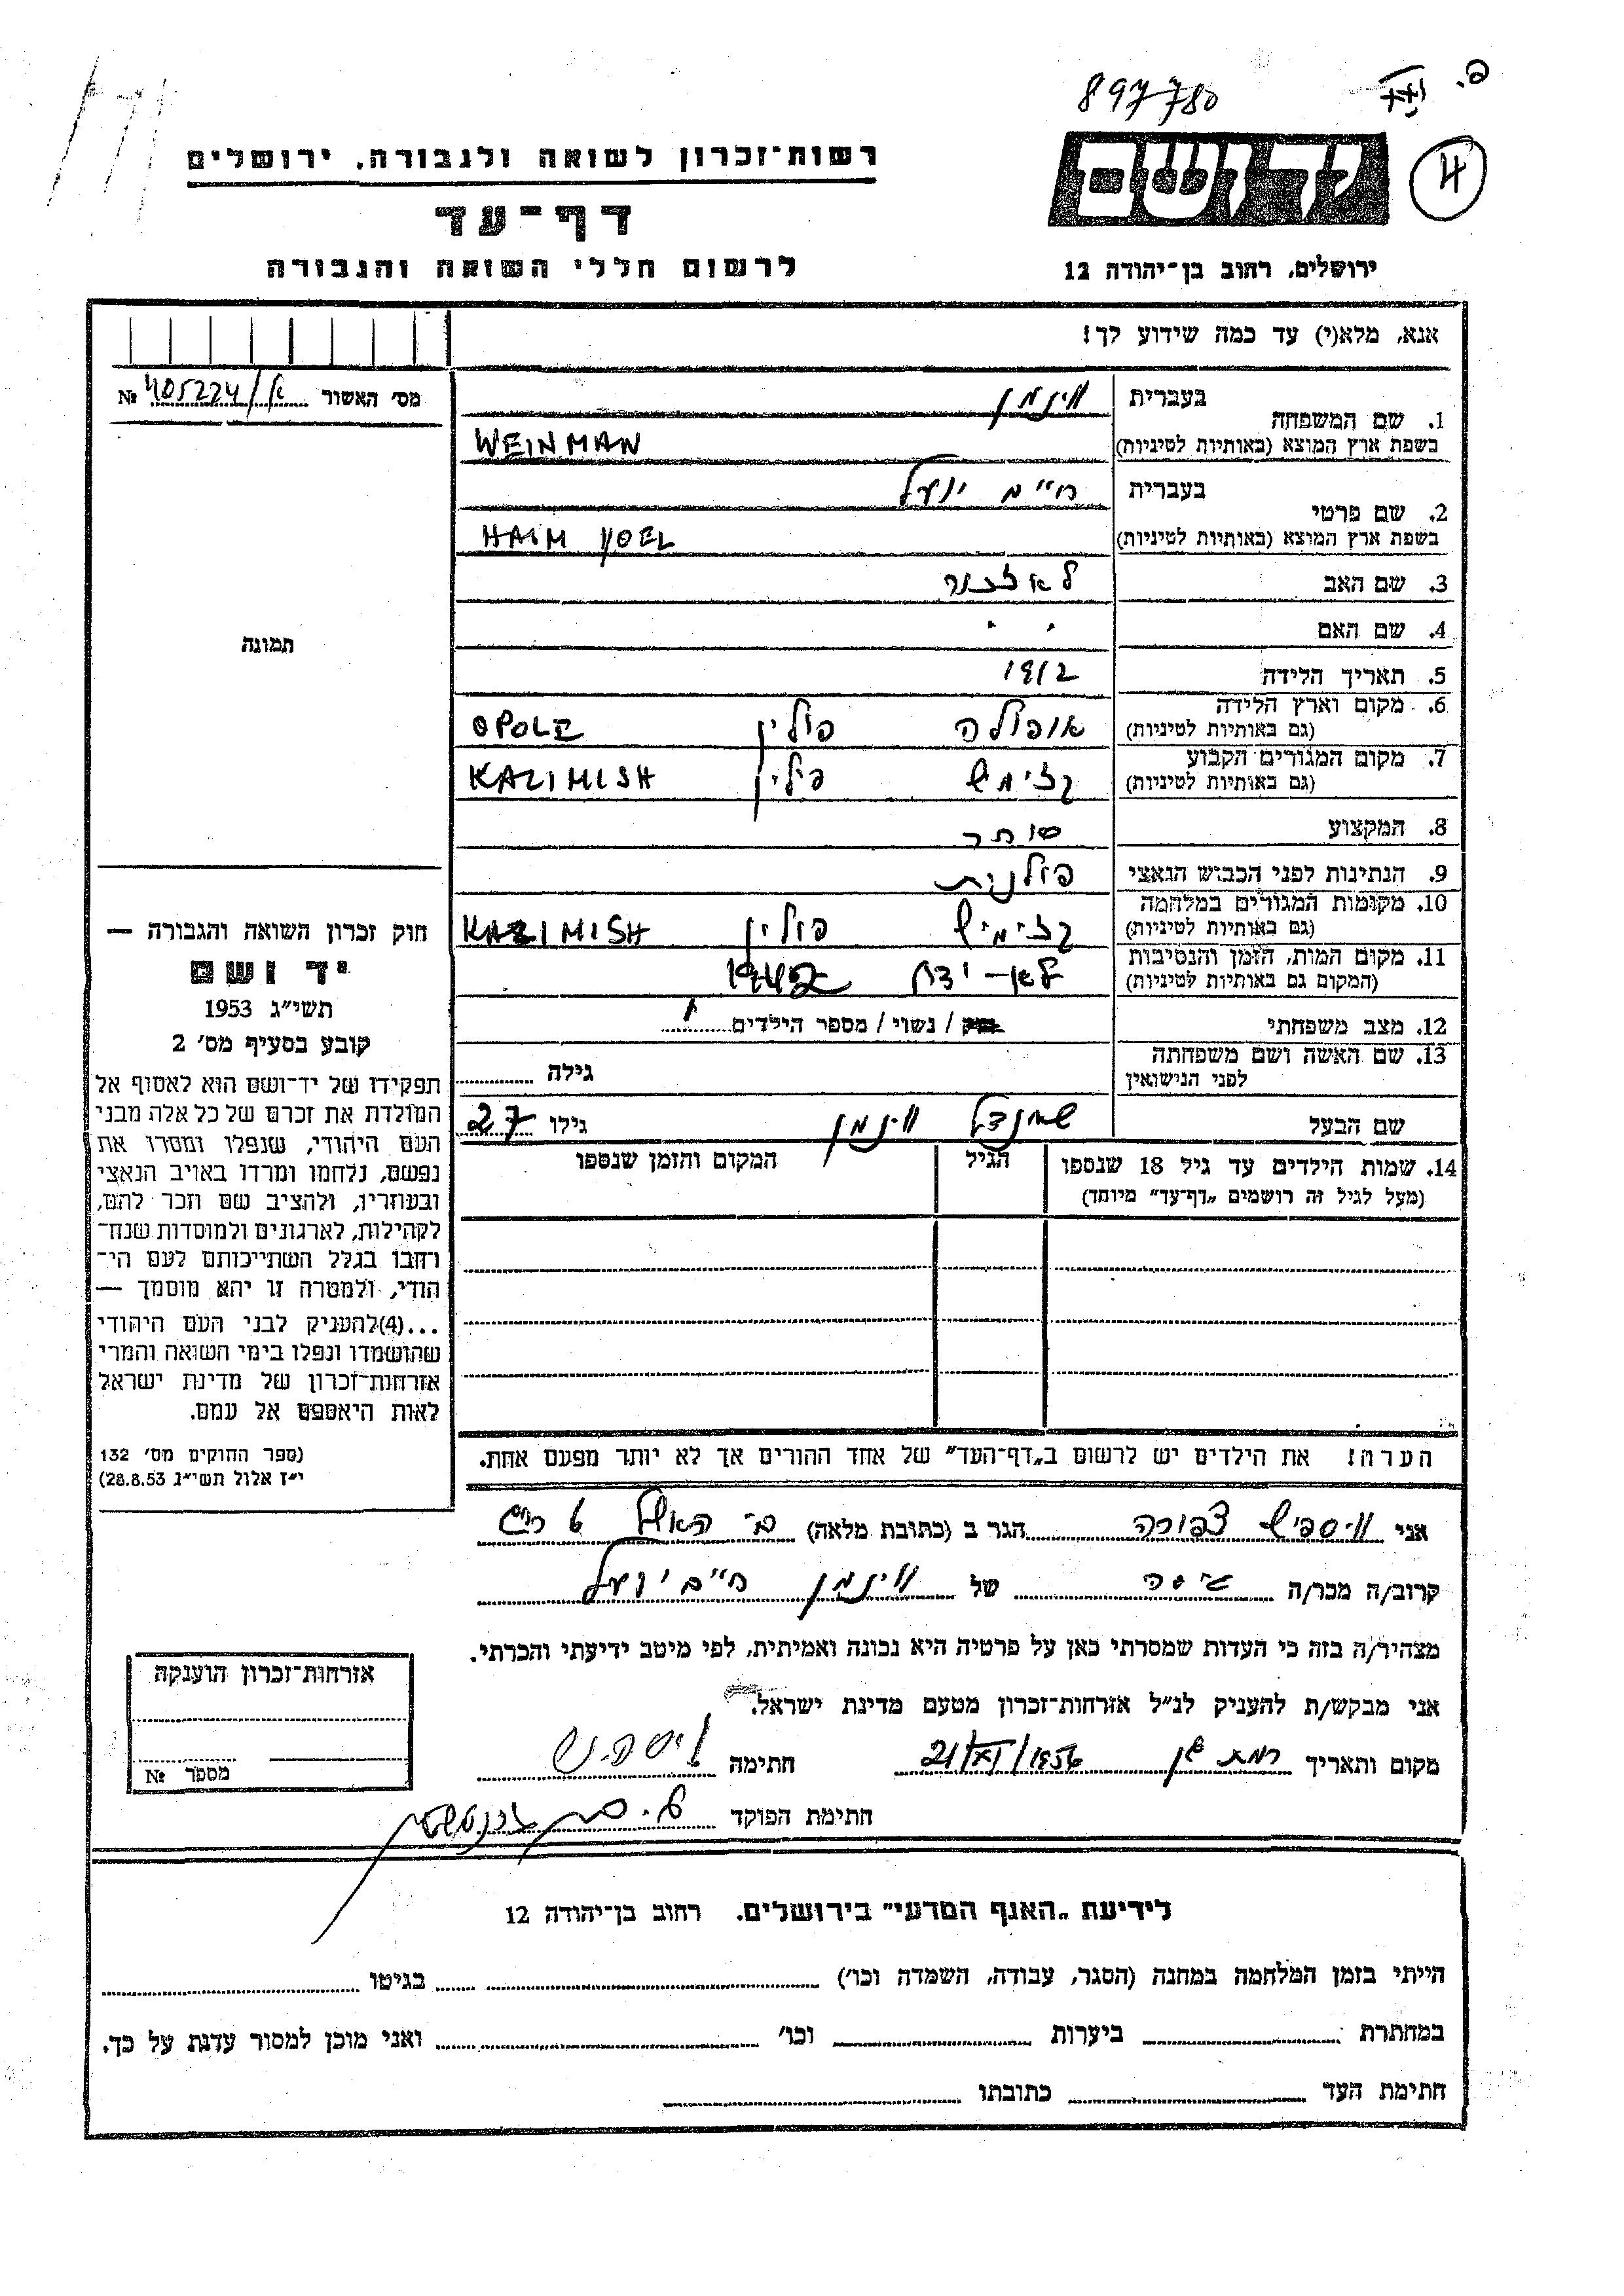 897780
4
יד ושם
ירושלים, רחוב בן־יהודה 12
רשות־זכרון לשואה ולגבורה, ירושלים
דף־עד
לרשום חללי השואה והגבורה
אנא, מלא(י) עד כמה שידוע לך!
מס׳ האשור א/405224 №
תמונה
1. שם המשפחה
בעברית ווינמן
בשפת ארץ המוצא (באותיות לטיניות) WEINMAN
2. שם פרטי
בעברית חיים יועל
בשפת ארץ המוצא (באותיות לטיניות) HAIM YOEL
3. שם האב
4. שם האם
5. תאריך הלידה 1912
6. מקום וארץ הלידה אופולה פולין OPOLE
(גם באותיות לטיניות)
7. מקום המגורים הקבוע קזימיש פולין KAZIMISH
(גם באותיות לטיניות)
8. המקצוע סוחר
9. הנתינות לפני הכבוש הנאצי פולנית
10. מקומות המגורים במלחמה קזימיש פולין KAZIMISH
(גם באותיות לטיניות)
11. מקום המות, הזמן והנסיבות לא־ידוע 1942
(המקום גם באותיות לטיניות)
12. מצב משפחתי רוק / נשוי / מספר הילדים 1
13. שם האשה ושם משפחתה גילה
לפני הנישואין
שם הבעל ווינמן גילו 27
14. שמות הילדים עד גיל 18 שנספו הגיל המקום והזמן שנספו
(מעל לגיל זה רושמים „דף־עד״ מיוחד)
הערה! את הילדים יש לרשום ב„דף־העד״ של אחד ההורים אך לא יותר מפעם אחת.
חוק זכרון השואה והגבורה —
יד ושם
תשי״ג 1953
קובע בסעיף מס׳ 2
תפקידו של יד־ושם הוא לאסוף אל
המולדת את זכרם של כל אלה מבני
העם היהודי, שנפלו ומסרו את
נפשם, נלחמו ומרדו באויב הנאצי
ובעוזריו, ולהציב שם וזכר להם,
לקהילות, לארגונים ולמוסדות שנח־
רחבו בגלל השתייכותם לעם הי־
הודי, ולמטרה זו יהא מוסמך —
...(4)להעניק לבני העם היהודי
שהושמדו ונפלו בימי השואה והמרי
אזרחות־זכרון של מדינת ישראל
לאות היאספם אל עמם.
(ספר החוקים מס׳ 132
י״ז אלול תשי״ג 28.8.53)
אני צפורה הגר ב (כתובת מלאה)
קרוב/ה מכר/ה גיסה של ווינמן חיים יועל
מצהיר/ה בזה כי העדות שמסרתי כאן על פרטיה היא נכונה ואמיתית, לפי מיטב ידיעתי והכרתי.
אני מבקש/ת להעניק לנ״ל אזרחות־זכרון מטעם מדינת ישראל.
מקום ותאריך רמת גן 21/XI/1956 חתימה
חתימת הפוקד
אזרחות־זכרון הוענקה
מספר №
לידיעת „האגף המדעי״ בירושלים. רחוב בן־יהודה 12
הייתי בזמן המלחמה במחנה (הסגר, עבודה, השמדה וכו׳) בגיטו
במחתרת ביערות וכו׳ ואני מוכן למסור עדות על כך.
חתימת העד כתובתו